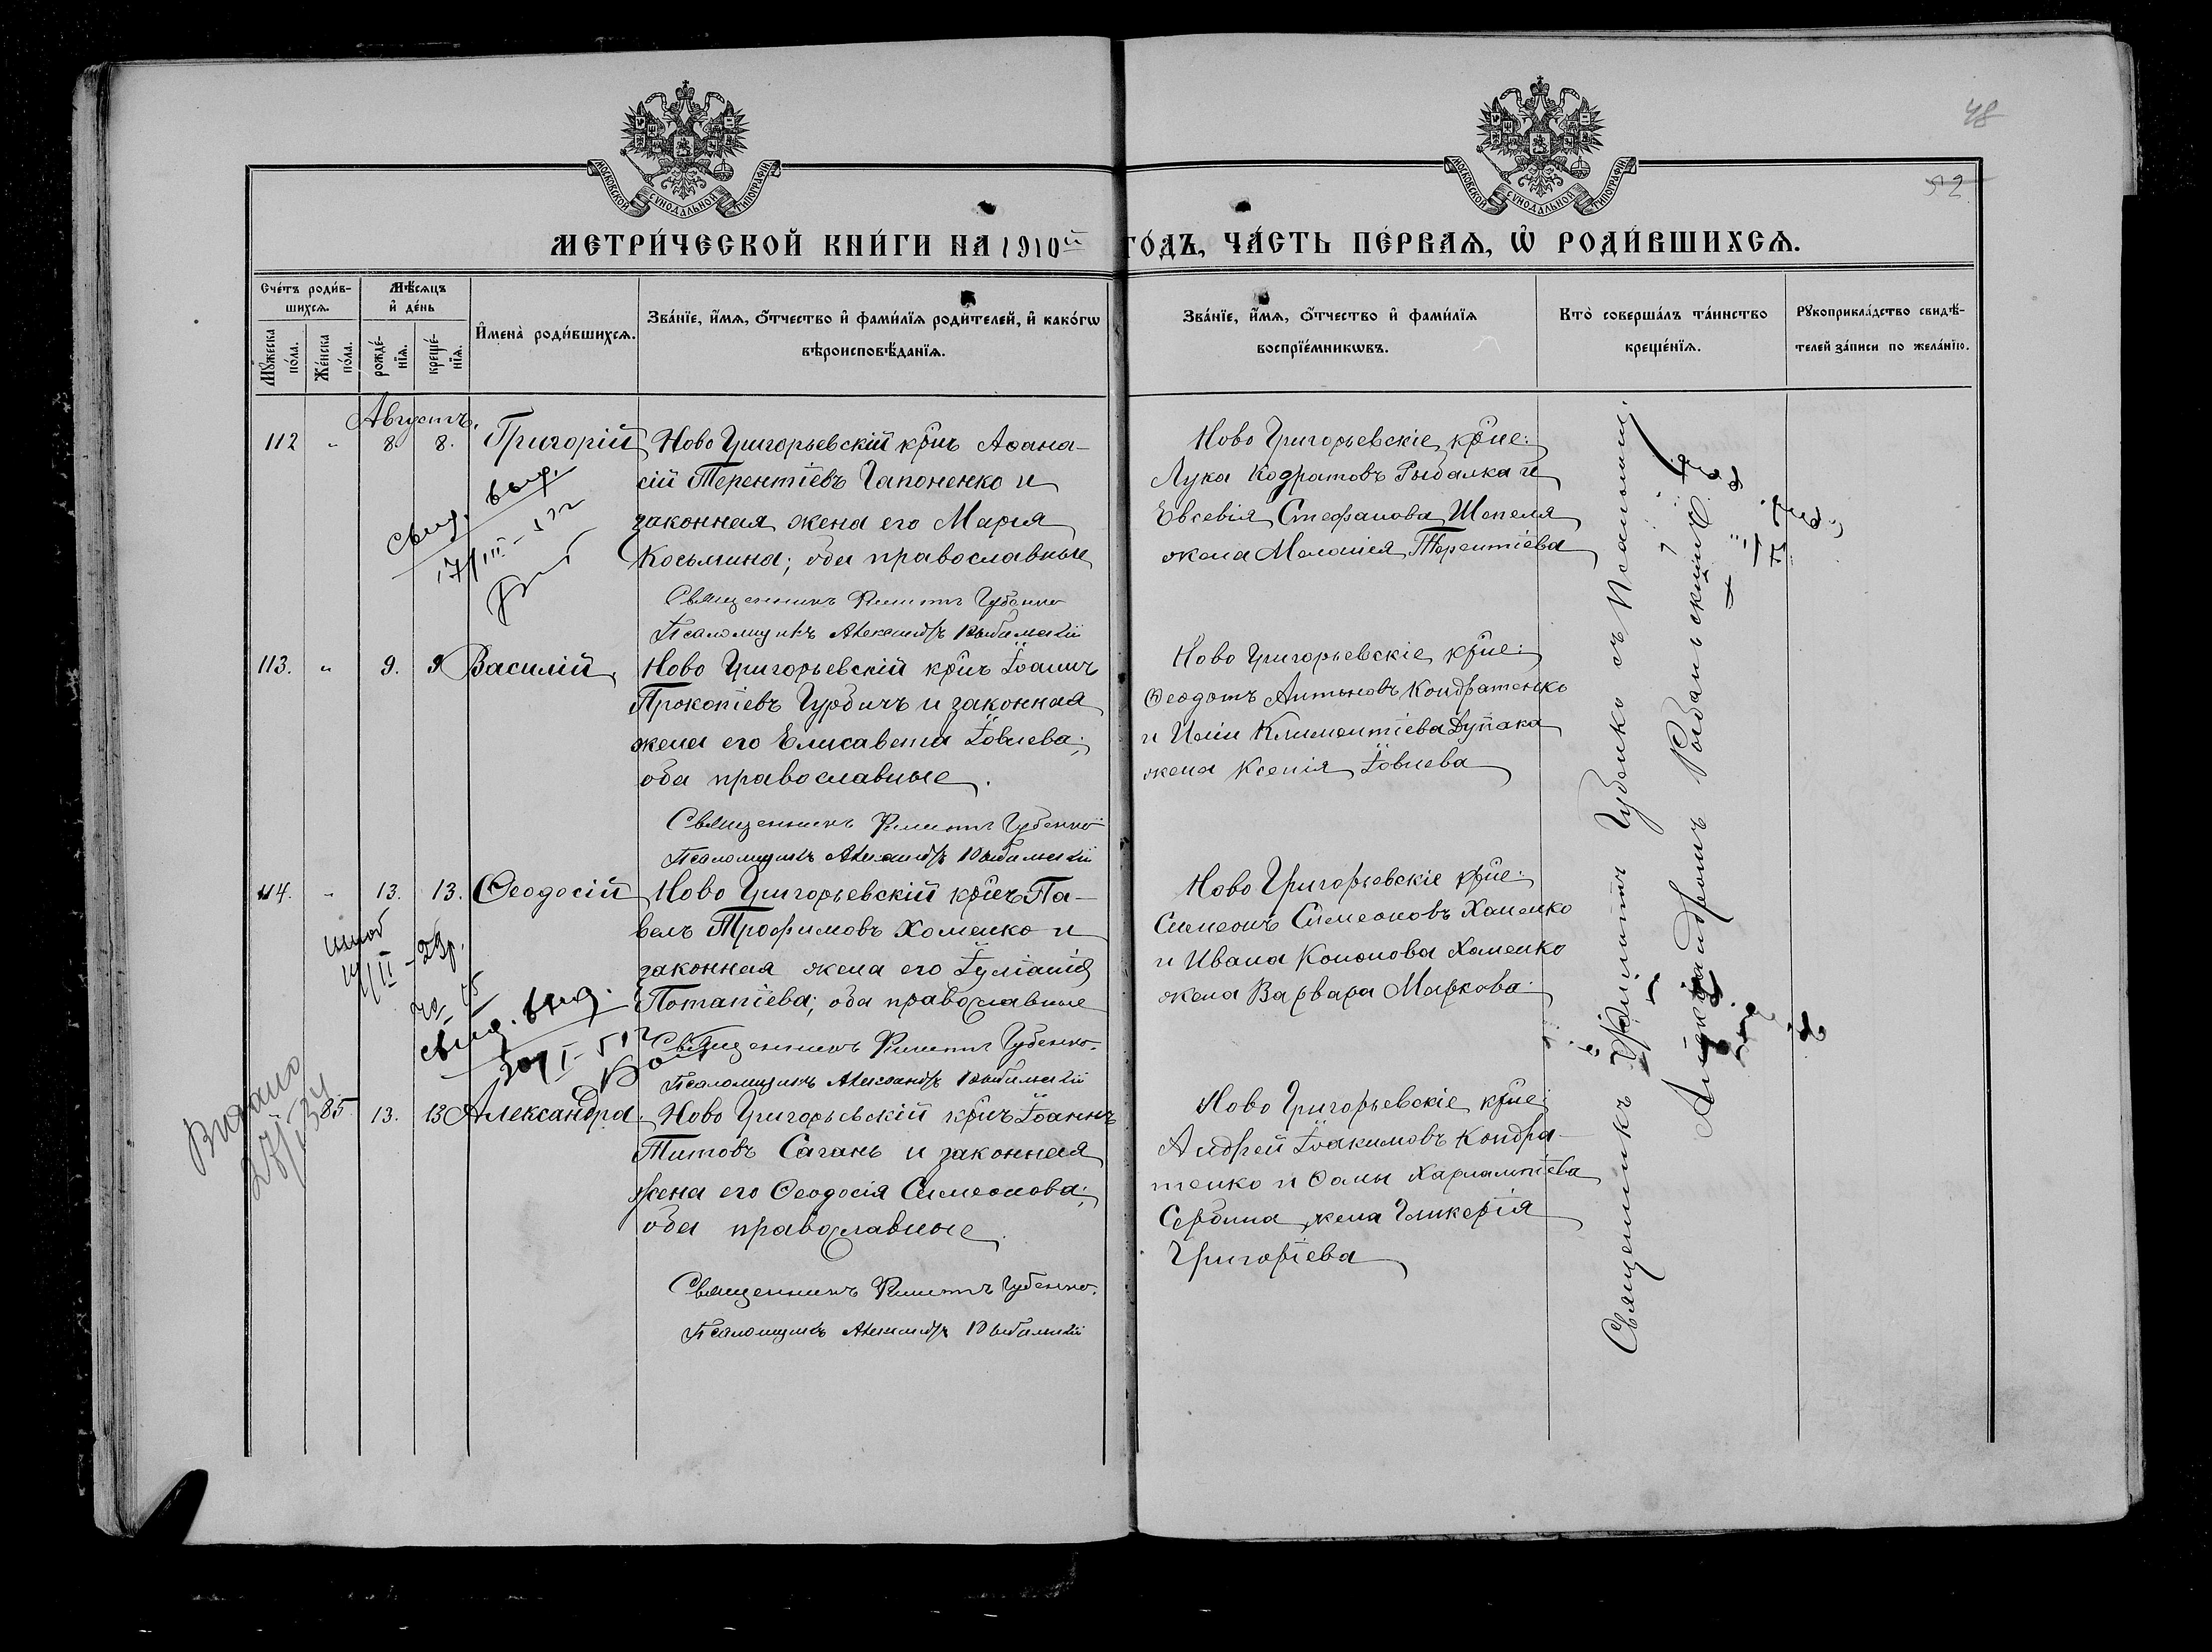 48
52
МОСКОВСКОЙ СѴНОДАЛЬНОЙ ТИПОГРАФІИ
МОСКОВСКОЙ СѴНОДАЛЬНОЙ ТИПОГРАФІИ
МЕТРИ́ЧЕСКОЙ КНИ́ГИ НА 1910й ГО́ДЪ, ЧА́СТЬ ПЕ́РВАѦ, Ѡ҆ РОДИ́ВШИХСѦ.
Сче́тъ роди́в-
шихсѧ.
Мꙋ́жеска по́ла.
Же́нска по́ла.
Мѣ́сѧцъ
и҆ де́нь
рожде́-нїѧ.
креще́-нїѧ.
И҆мена̀ роди́вшихсѧ.
Зва́нїе, и҆́мѧ, ѻ҆́тчество и҆ фами́лїѧ роди́телей, и҆ како́гѡ
вѣроисповѣ́данїѧ.
Зва́нїе, и҆́мѧ, ѻ҆́тчество и҆ фами́лїѧ
воспрїе́мникѡвъ.
Кто̀ соверша́лъ та́инство
креще́нїѧ.
Рꙋкоприкла́дство свидѣ́-
телей за́писи по жела́нїю.
Августъ.
112 " 8. 8. Григорій
Ново Григорьевскій кр͠нъ Аѳана-
сій Терентіевъ Гапоненко и
законная жена его Марія
Косьмина; оба православные
Священникъ Филиппъ Губенко
Псаломщикъ Александръ
Ново Григорьевскіе кр͠не:
Лука Кодратовъ Рыбалка и
Евсевія Стефанова Шепеля
жена Меланія Терентіева
свид. выд.
17/III
113. " 9. 9 Василій
Ново Григорьевскій кр͠нъ Іоаннъ
Прокопіевъ Гурбичъ и законная
жена его Елисавета Іовлева;
оба православные.
Священникъ Филиппъ Губенко
Псаломщикъ Александръ
Ново Григорьевскіе кр͠не:
Ѳеодотъ Антоновъ Кондратенко
и Иліи Климентіева Дупака
жена Ксенія Іовлева
114. " 13. 13. Ѳеодосій
Ново Григорьевскій кр͠нъ Па-
велъ Трофимовъ Хоменко и
законная жена его Іуліанія
Потапіева; оба православные
Священникъ Филиппъ Губенко.
Псаломщикъ Александръ
Ново Григорьевскіе кр͠не:
Симеонъ Симеоновъ Хоменко
и Ивана Кононова Хоменко
жена Варвара Маркова.
свид. выд.
Видано
85. 13. 13 Александра.
Ново Григорьевскій кр͠нъ Іоаннъ
Титовъ Сагань и законная
жена его Ѳеодосія Симеонова;
оба православные.
Священникъ Филиппъ Губенко.
Псаломщикъ Александръ
Ново Григорьевскіе кр͠не:
Андрей Іоакимовъ Кондра-
тенко и Ѳомы Харлампіева
Сербина жена Гликерія
Григоріева
Священникъ Филиппъ Губенко съ Псаломщ.
Александромъ